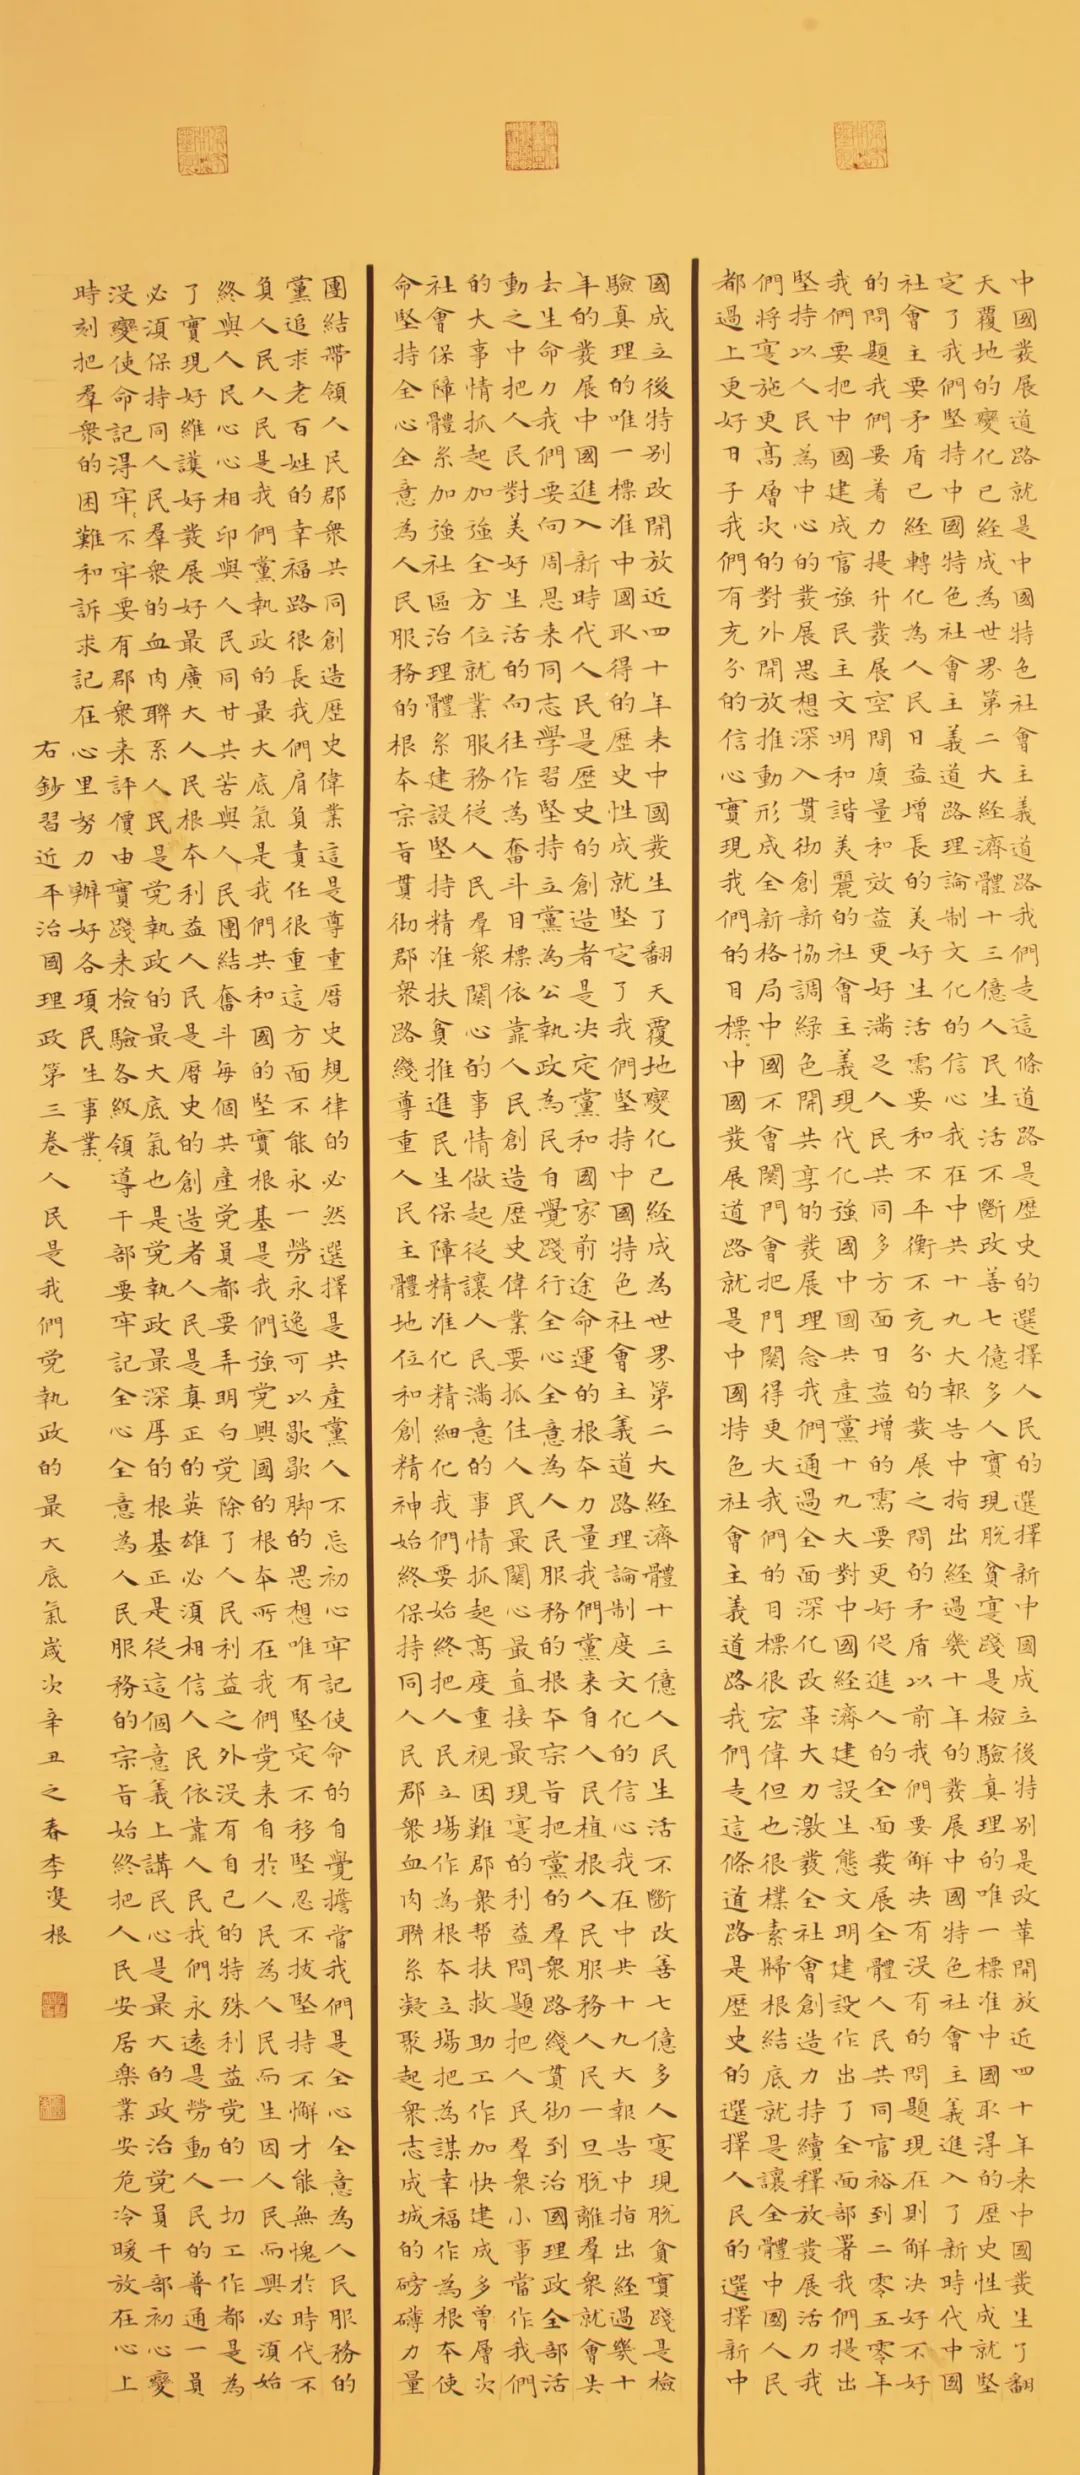 中國發展道路就是中國特色社會主義道路我們走這條道路是歷史的選擇人民的選擇新中國成立後特别是改革開放近四十年来中國發生了翻
天覆地的變化已経成為世界第二大経濟體十三億人民生活不斷改善七億多人實現脫貧寔踐是檢驗真理的唯一標准中國取得的歷史性成就堅
定了我們堅持中國特色社會主義道路理論制文化的信心我在中共十九大報告中指出経過幾十年的發展中國特色社會主義進入了新時代中國
社會主要矛盾已経轉化為人民日益增長的美好生活需要和不平衡不充分的發展之間的矛盾以前我們要解决有没有的問題現在則解决好不好
的問題我們要着力提升發展空間质量和效益更好滿足人民共同多方面日益增的需要更好促進人的全面發展全體人民共同富裕到二零五零年
我們要把中國建成富強民主文明和諧美麗的社會主義現代化強國中國共產黨十九大對中國経濟建設生態文明建設作出了全面部署我們提出
堅持以人民為中心的發展思想深入貫彻創新協調綠色開共享的發展理念我們通過全面深化改革大力激發全社會創造力持續釋放發展活力我
們將寔施更高層次的對外開放推動形成全新格局中國不會関門會把門関得更大我們的目標很宏偉但也很樸素歸根結底就是讓全體中國人民
都過上更好日子我們有充分的信心實現我們的目標中國發展道路就是中國特色社會主義道路我們走這條道路是歷史的選擇人民的選擇新中
國成立後特别改開放近四十年来中國發生了翻天覆地變化已経成為世界第二大経濟體十三億人民生活不斷改善七億多人寔現脫貧實踐是檢
驗真理的唯一標准中國取得的歷史性成就堅定了我們堅持中國特色社會主義道路理論制度文化的信心我在中共十九大報告中指出経過幾十
年的發展中國進入新時代人民是歷史的創造者是决定黨和國家前途命運的根本力量我們黨来自人民植根人民服務人民一旦脫離羣衆就會失
去生命力我們要向周恩来同志學習堅持立黨為公執政為民自覺踐行全心全意為人民服務的根本宗旨把黨的羣衆路綫貫彻到治國理政全部活
動之中把人民對美好生活的向往作為奮斗目標依靠人民創造歷史偉業要抓住人民最関心最直接最現寔的利益問題把人民羣衆小事當作我們
的大事情抓起加強全方位就業服務從人民羣衆関心的事情做起從讓人民滿意的事情抓起高度重視困難郡衆帮扶救助工作加快建成多曾層次
社會保障體系加強社區治理體系建設堅持精准扶貧推進民生保障精准化精細化我們要始終把人民立場作為根本立場把為謀幸福作為根本使
命堅持全心全意為人民服務的根本宗旨貫彻郡衆路綫尊重人民主體地位和創精神始終保持同人民郡衆血肉聯系凝聚起衆志成城的磅礴力量
團結帶領人民郡衆共同創造歷史偉業這是尊重曆史規律的必然選擇是共產黨人不忘初心牢記使命的自覺擔當我們是全心全意為人民服務的
黨追求老百姓的幸福路很長我們肩負責任很重這方面不能永一勞永逸可以歇歇脚的思想唯有堅定不移堅忍不拔堅持不懈才能無愧於時代不
負人民人民是我們黨執政的最大底氣是我們共和國的堅實根基是我們強党興國的根本所在我們党来自於人民為人民而生因人民而興必須始
終與人民心心相印與人民同甘共苦與人民團結奮斗每個共產党員都要弄明白党除了人民利益之外没有自己的特殊利益党的一切工作都是為
了實現好維護好發展好最廣大人民根本利益人民是曆史的創造者人民是真正的英雄必須相信人民依靠人民我們永遠是勞動人民的普通一員
必須保持同人民羣衆的血肉聯系人民是党執政的最大底氣也是党執政最深厚的根基正是從這個意義上講民心是最大的政治党員干部初心變
没變使命記得牢不牢要有郡衆来評價由實踐来檢驗各級領導干部要牢記全心全意為人民服務的宗旨始終把人民安居樂業安危冷暖放在心上
時刻把羣衆的困難和訴求記在心里努力辦好各項民生事業
右鈔習近平治國理政第三卷人民是我們党執政的最大底氣歲次辛丑之春李雙根